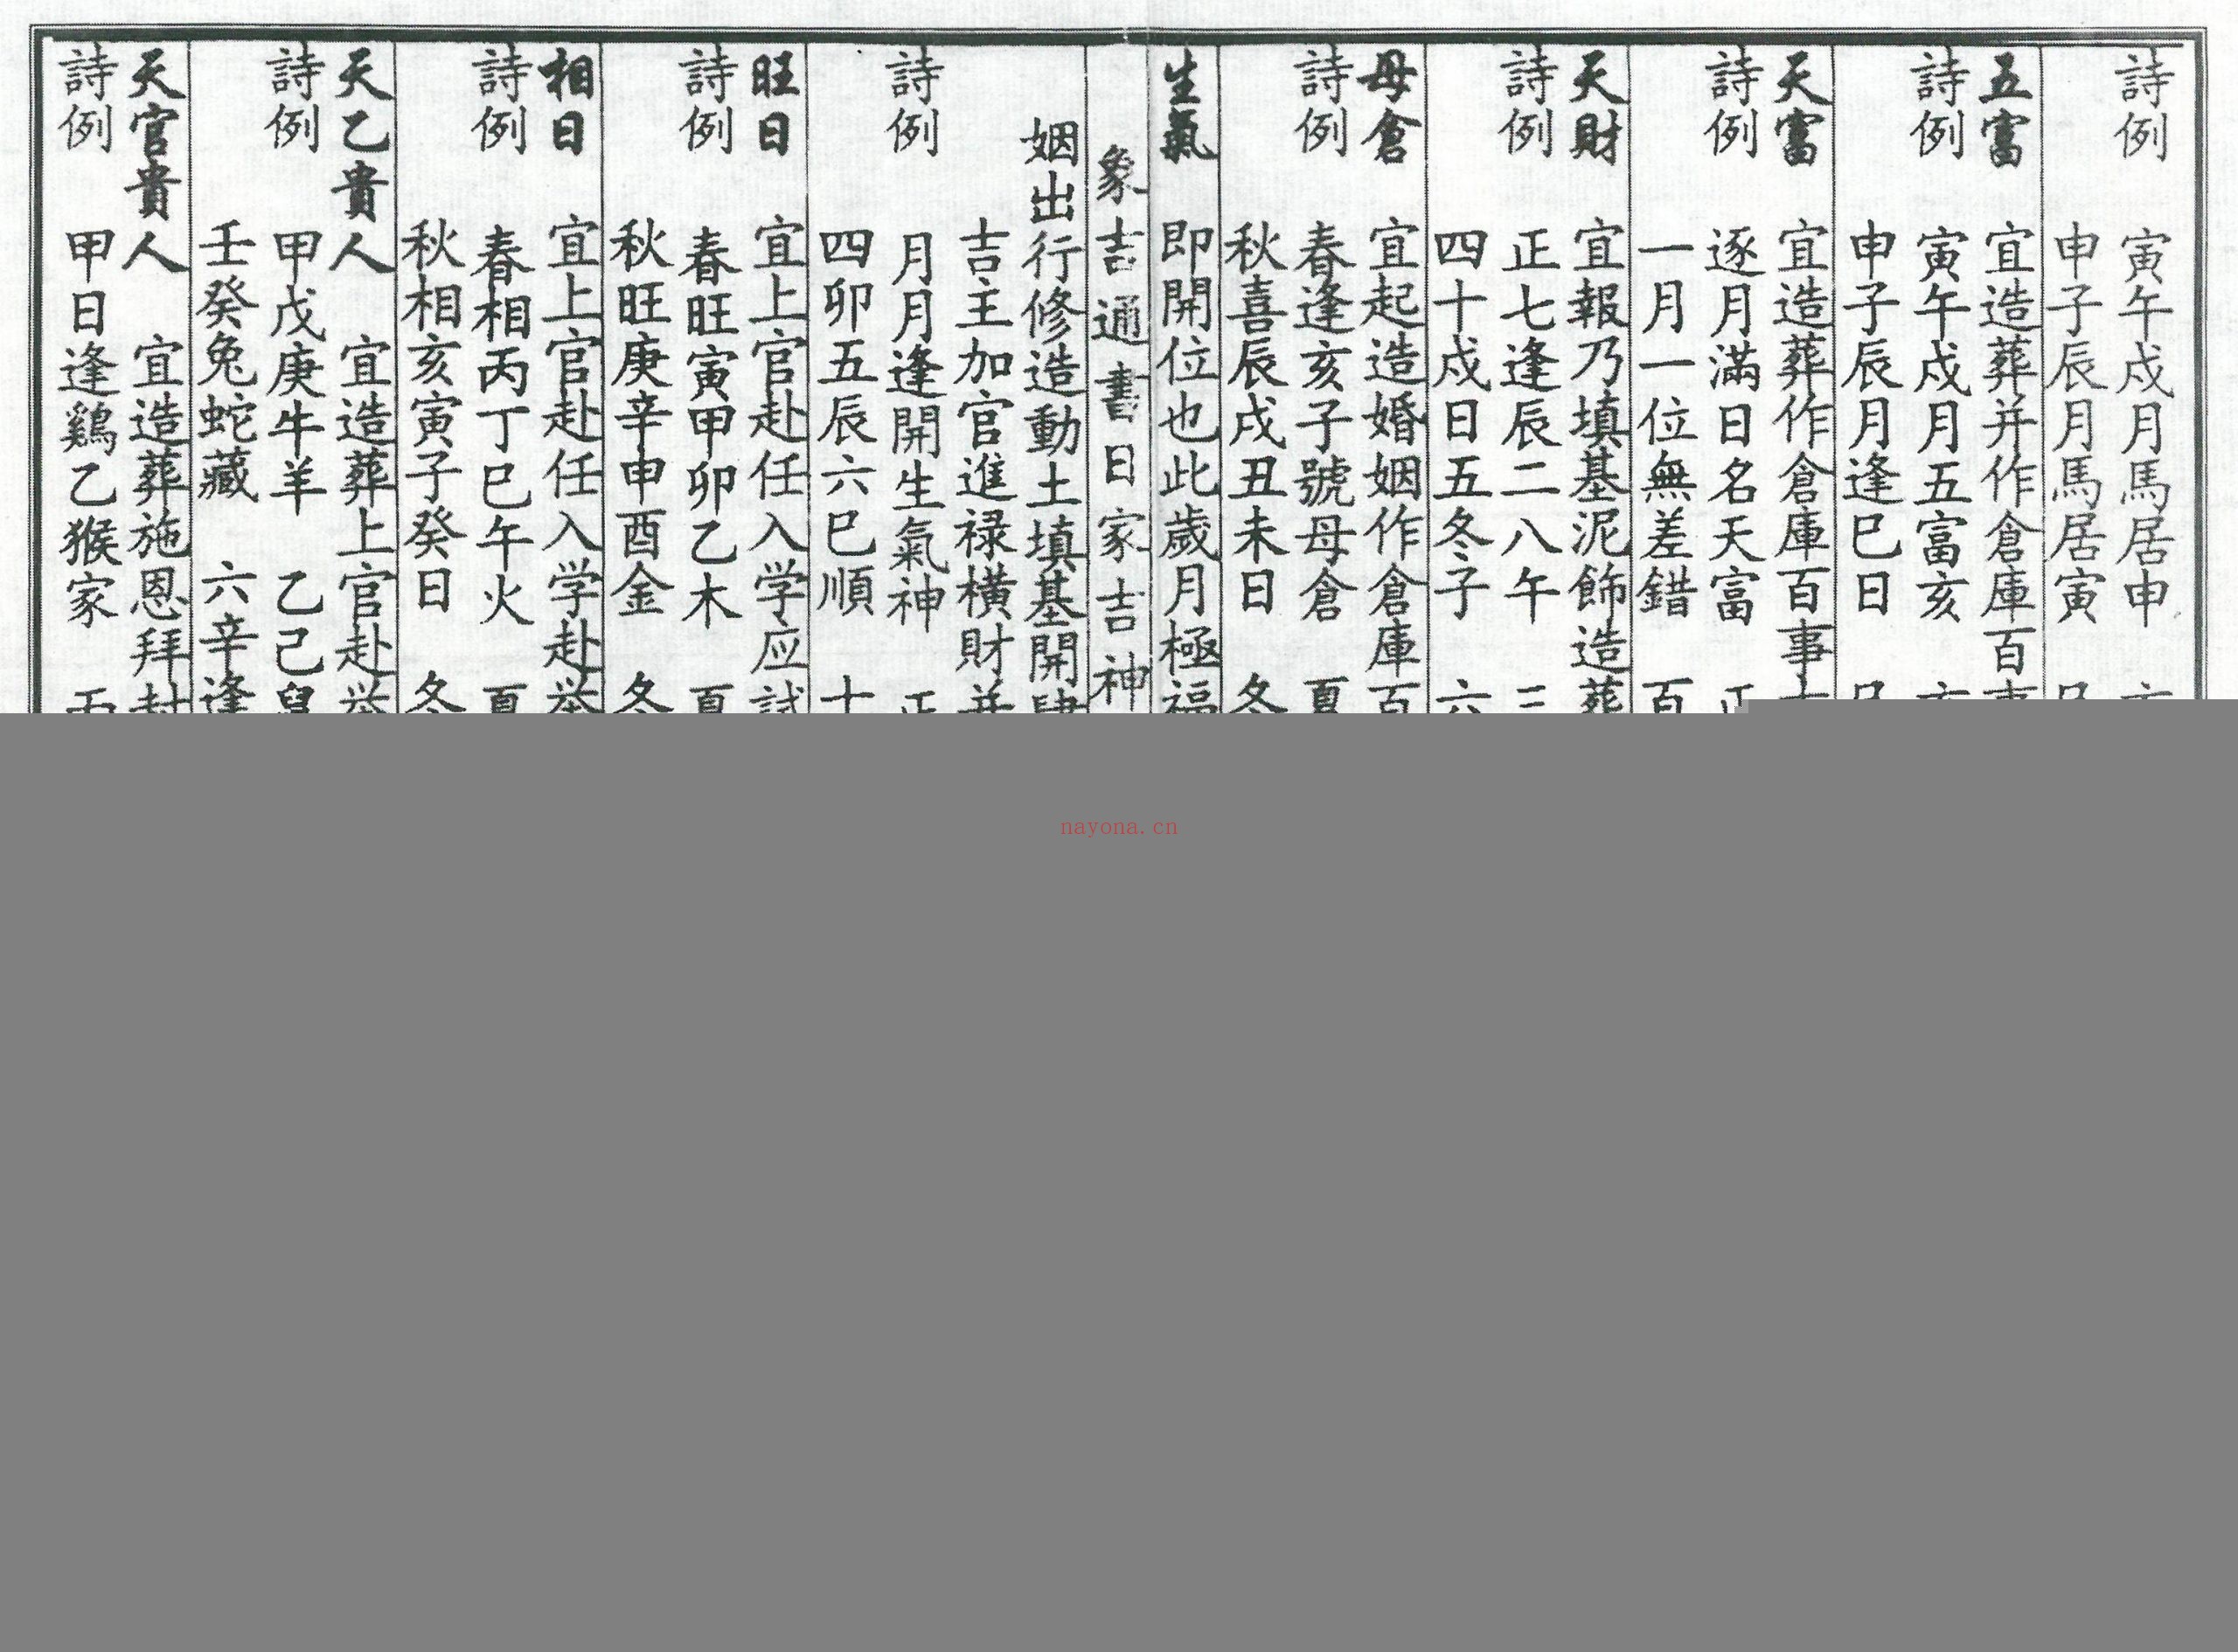 詩例 寅午戍月馬居申
申子辰月馬居寅
五富 宜造葬并作倉庫百
詩例 寅午戍月五富亥
申子辰月逢巳日
天富 宜造葬作倉庫百事
詩例 逐月滿日名天富
一月一位無差錯 百
天財 宜報乃填基泥飾造葬
詩例 正七逢辰二八午 三
四十戍日五冬子 六
母倉 宜起造婚姻作倉庫百
詩例 春逢亥子號母倉 夏
秋喜辰戍丑未日 冬
生氣 即開位也此歲月極福
象吉通書日家吉神
姻出行修造動土填基開肆
吉主加官進禄橫財并
詩例 月月逢開生氣神 正
四卯五辰六巳順 十
旺日 宜上官赴任入学应試
詩例 春旺寅甲卯乙木 夏
秋旺庚辛申酉金 冬
相日 宜上官赴任入学赴举
詩例 春相丙丁巳午火 夏
秋相亥寅子癸日 冬
天乙貴人 宜造葬上官赴举
詩例 甲戊庚牛羊 乙己鼠
壬癸兔蛇藏 六辛逢
天官貴人 宜造葬施恩拜封
詩例 甲日逢鷄乙猴家 丙
nayona.cn